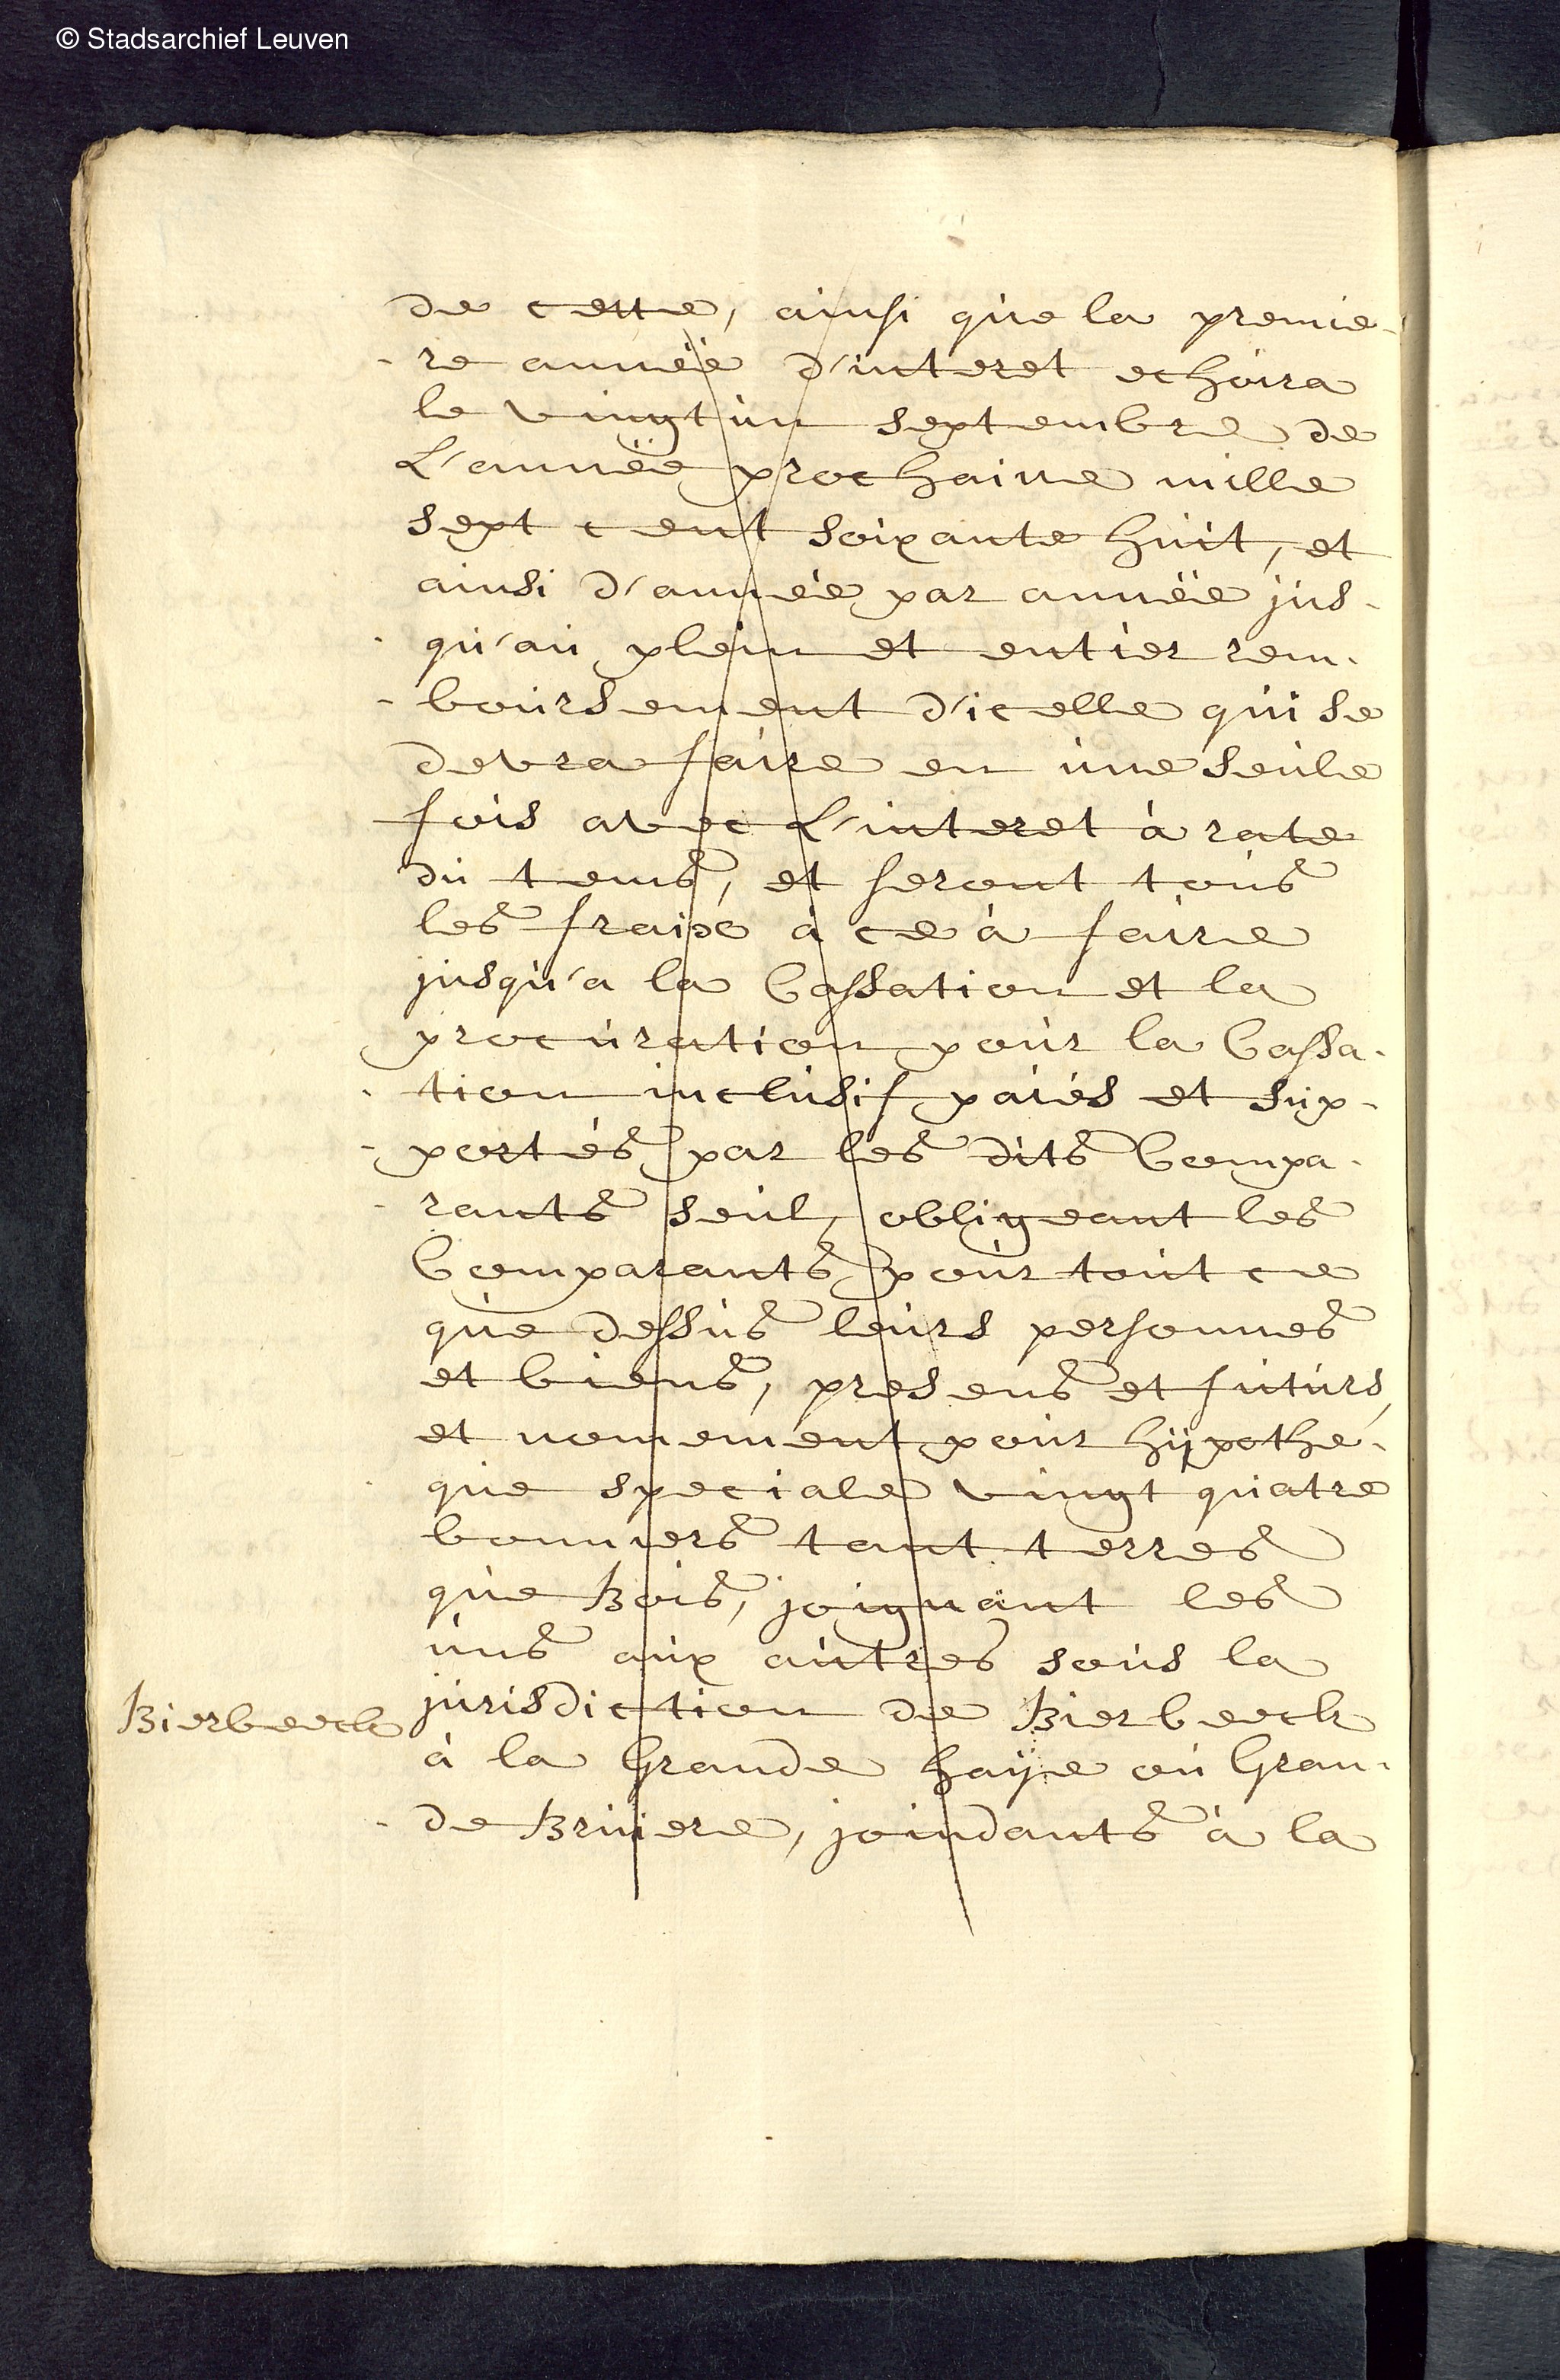 © Stadsarchief Leuven
de cette, ainsi que la premie-
-re année d'interet echoira
le vingt un septembre de
L'année prochaine mille
sept cent soixante huit, et
ainsi d'année par année jus-
qu'au plein et entier rem-
-boursement d'icelle qui se
devra faire en une seule
fois avec L'interet à rate
du tems, et seront tous
les fraix à ce à faire
jusqu'a la Cassation et la
procuration pour la Cassa-
-tion inclusif paiés et sup-
-portés par les dits Compa-
-rants seul, obligeant les
Comparants pour tout ce
que dessus leurs personnes
et biens, presens et futurs,
et nomement pour hÿpothe-
-que speciale vingt quatre
bonniers tant terres
que Bois, joignant les
uns aux autres sous la
Bierbeeck jurisdiction de Bierbeeck
à la Grande haÿe ou Gran-
-de Briiere, joindants à la